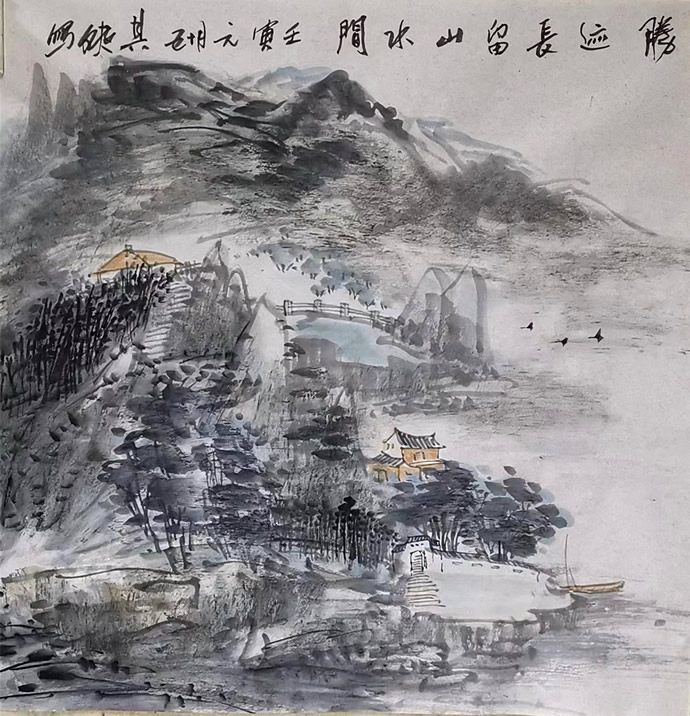 勝迹長留山水間 壬寅元月 其